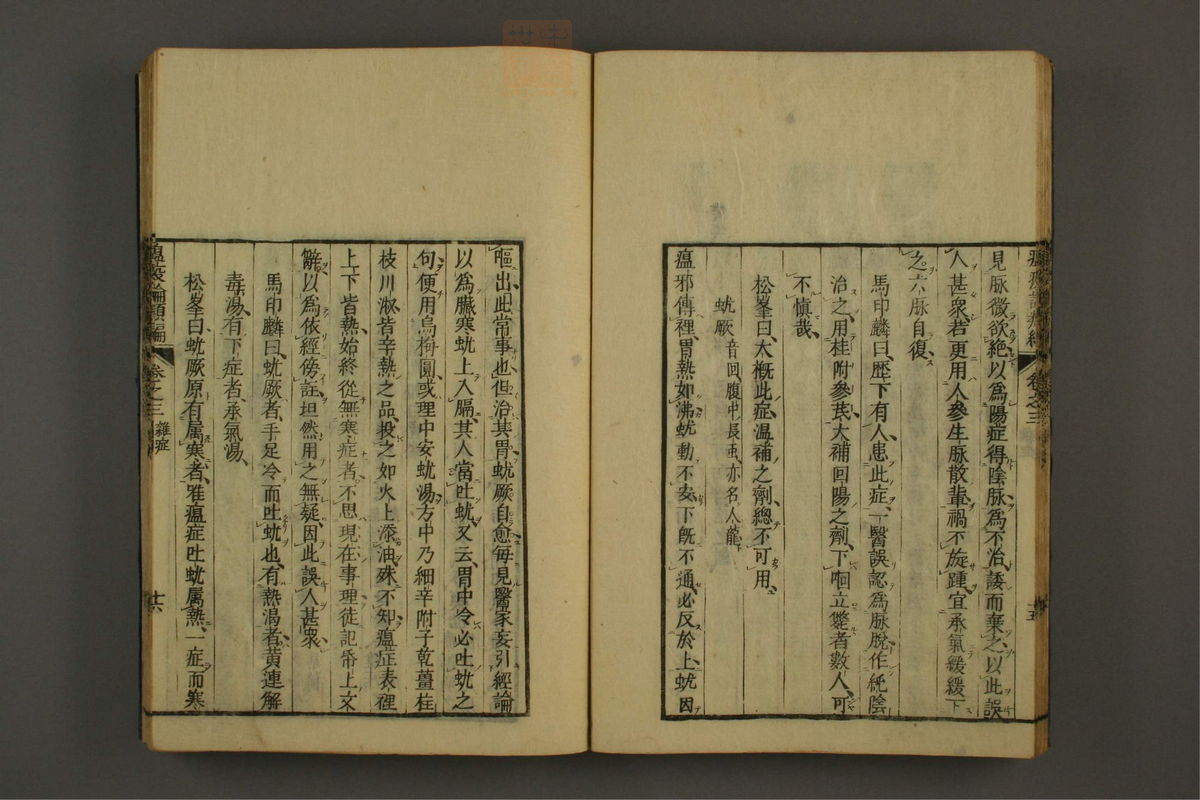 見脉微欲絶以爲陽症得陰脉爲不治諉而棄之以此誤
人甚衆若更用人參生脉散輩禍不旋踵宜承氣緩緩下
之六脉自復
馬印麟曰歴下有人患此症一醫誤認爲脉脫作純陰
治之用桂附參芪大補回陽之劑下咽立斃者數人可
不愼哉
松峯曰大概此症温補之劑總不可用
蚘厥 音回腹中長虫亦名人龍
瘟邪傳裡胃熱如沸蚘動不安下旣不通必反於上蚘因
卷之三
十五
嘔出此常事也但治其胃蚘厥自愈每見醫家妄引經論
以爲臟寒蚘上入膈其人當吐蚘又云胃中冷必吐蚘之
句便用烏梅圓或理中安蚘湯方中乃細辛附子乾薑桂
枝川淑皆辛熱之品投之如火上添油殊不知瘟症表裡
上下皆熱始終從無寒症者不思現在事理徒記帋上文
辭以爲依經傍註坦然用之無疑因此誤人甚衆
馬印麟曰蚘厥者手足冷而吐蚘也有熱渇者黄連解
毒湯有下症者承氣湯
松峯曰蚘厥原有属寒者雅瘟症吐蚘属熱一症而寒
瘟疫論類編
卷之三
雜症
十六